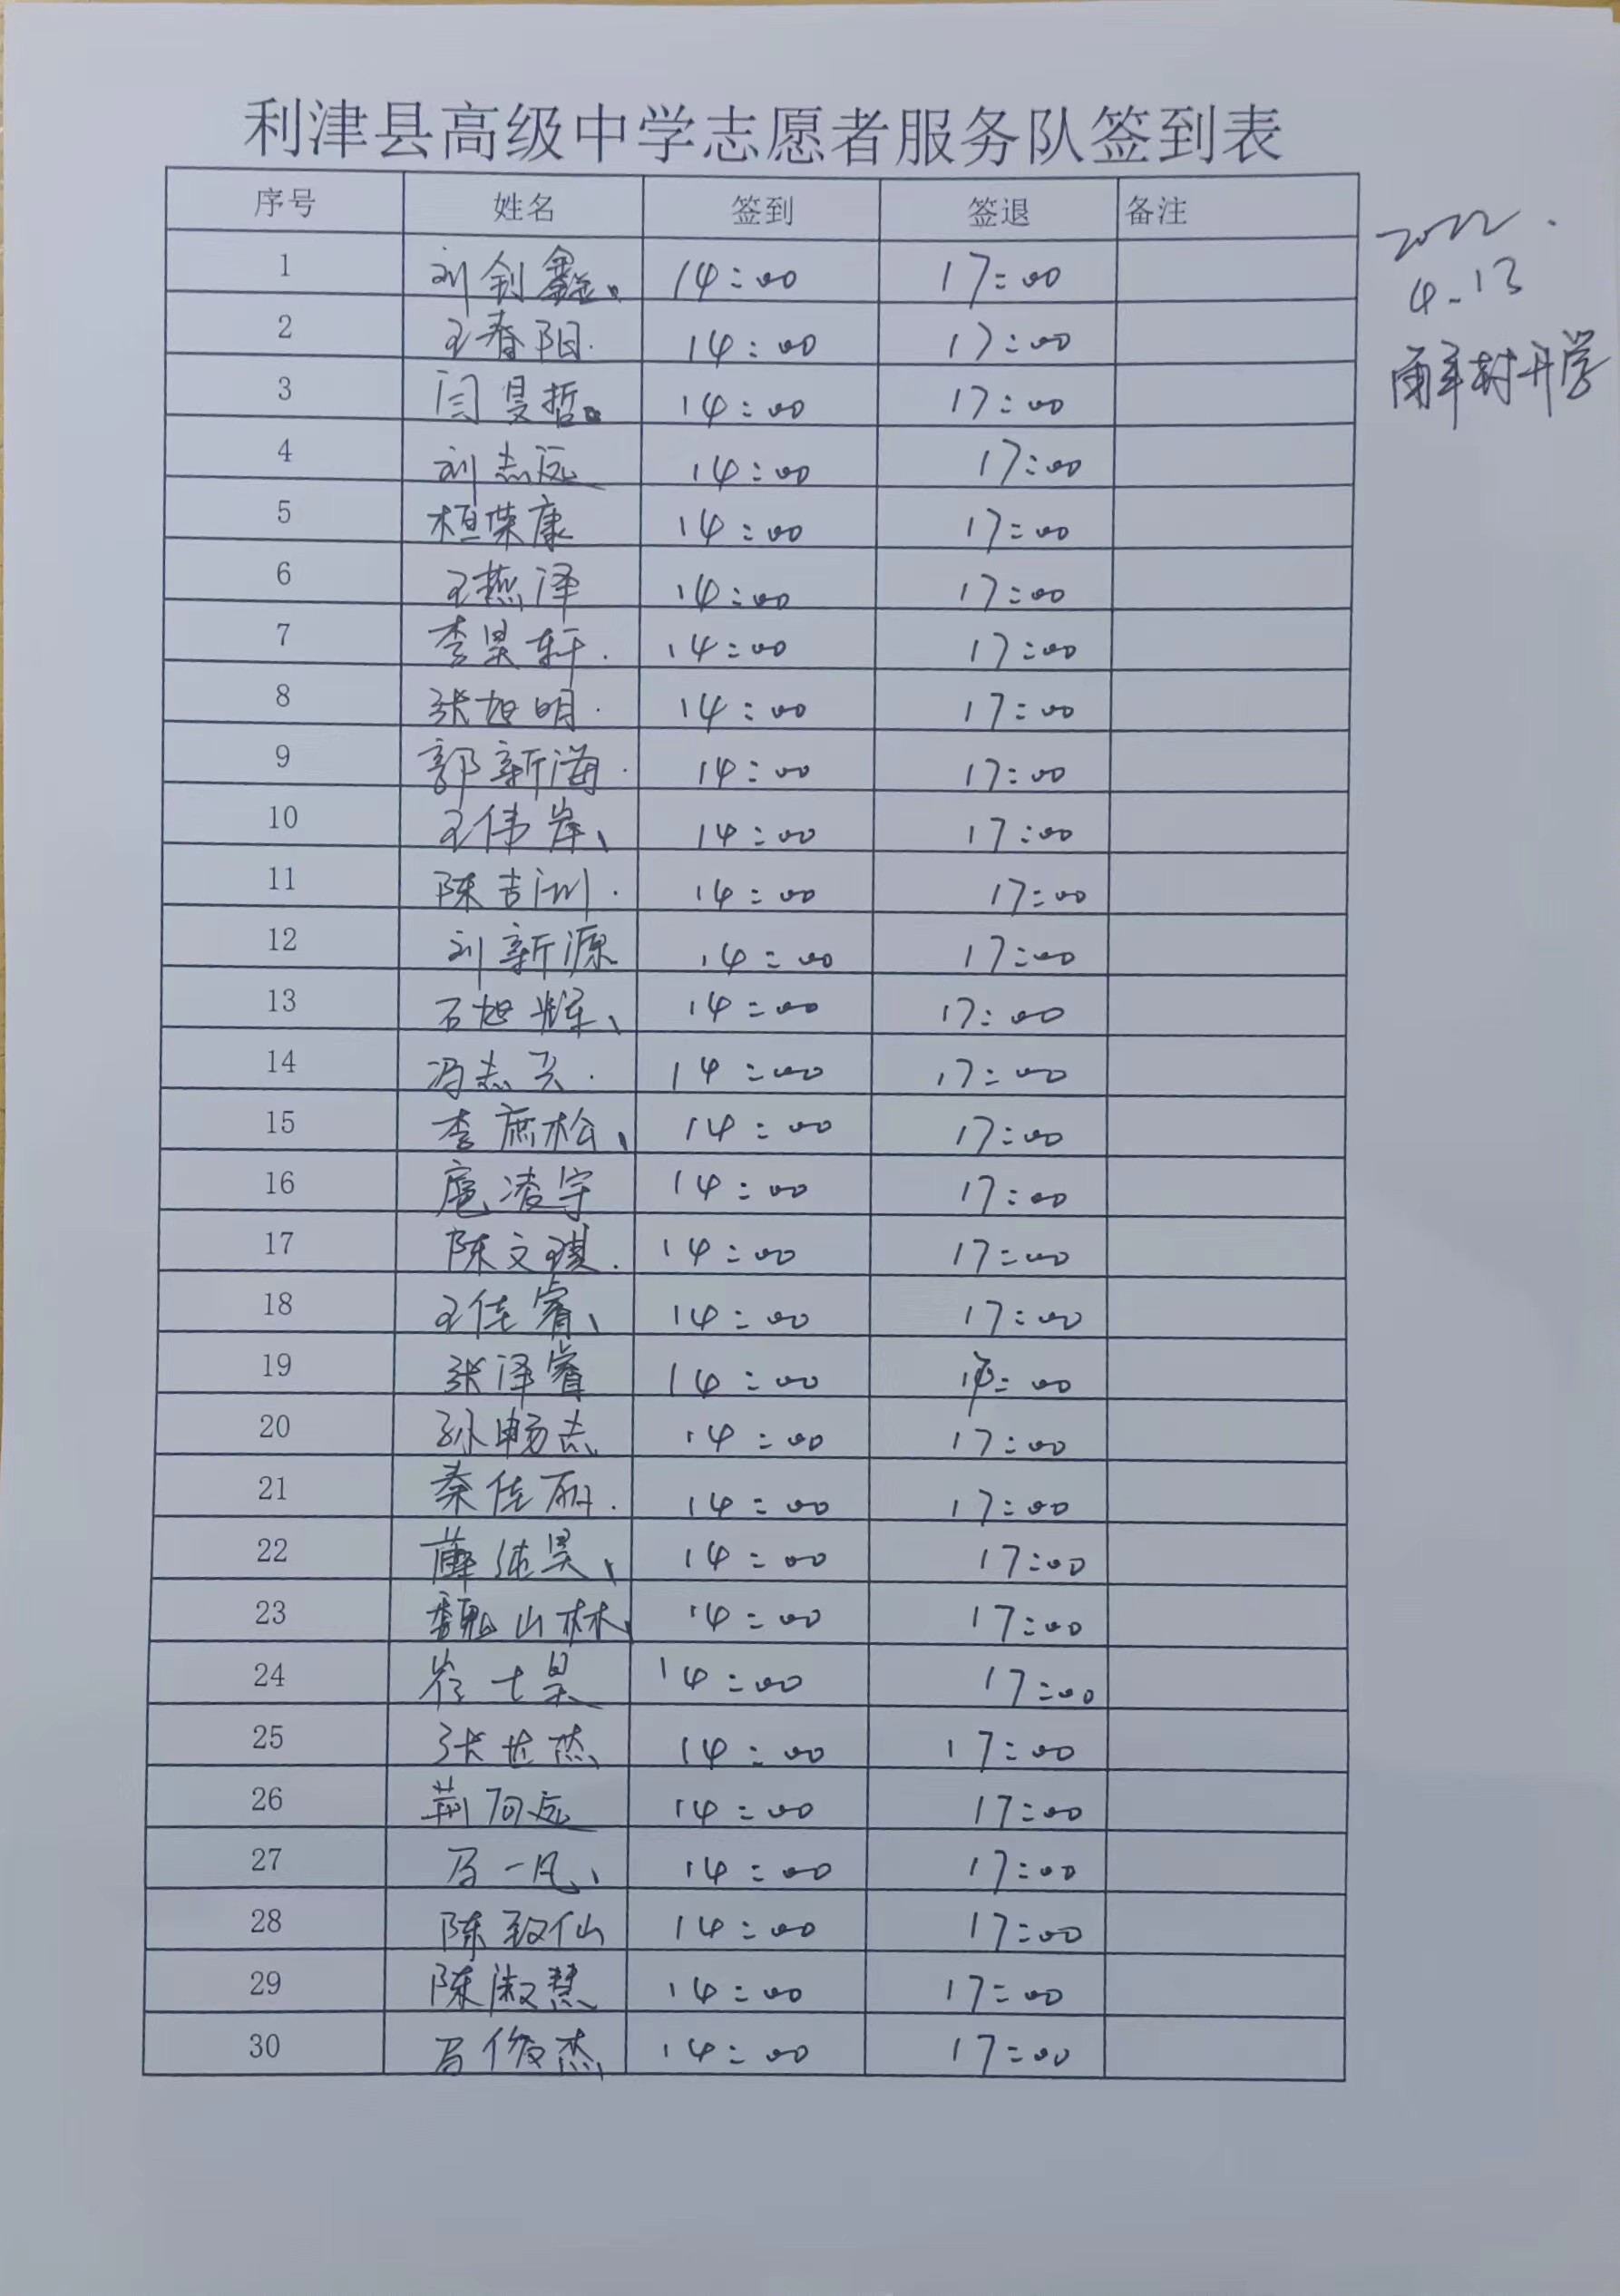 利津县高级中学志愿者服务队签到表
序号 姓名 签到 签退 备注
2022.
4.13
1 刘钊鑫 14:00 17:00
2 王春阳 14:00 17:00
村开学
3 闫昊哲 14:00 17:00
4 刘志远 14:00 17:00
5 桓荣康 14:00 17:00
6 王燕泽 14:00 17:00
7 李昊轩 14:00 17:00
8 张旭明 14:00 17:00
9 郭新海 14:00 17:00
10 王伟岸 14:00 17:00
11 陈吉洲 14:00 17:00
12 刘新源 14:00 17:00
13 石旭辉 14:00 17:00
14 冯志 14:00 17:00
15 李庶松 14:00 17:00
16 扈凌宇 14:00 17:00
17 陈文琪 14:00 17:00
18 王佳睿 14:00 17:00
19 张泽睿 14:00 17:00
20 孙畅志 14:00 17:00
21 秦佳丽 14:00 17:00
22 薛 昊 14:00 17:00
23 魏山林 14:00 17:00
24 崔士昊 14:00 17:00
25 张世杰 14:00 17:00
26 荆 远 14:00 17:00
27 马一凡 14:00 17:00
28 陈致仙 14:00 17:00
29 陈淑慧 14:00 17:00
30 马俊杰 14:00 17:00